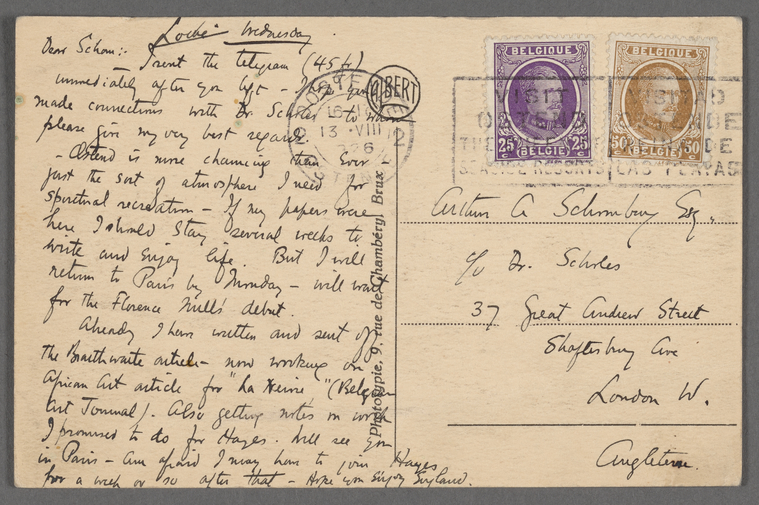 Locke Wednesday
Dear Schom:- I sent the telegram (45 fr)
immediately after you left - I hope you
made connections with Dr Scholes to whom
please give my very best regards.
- Ostend is more charming than ever -
just the sort of atmosphere I need for
spiritual recreation - If my papers were
here I should stay several weeks to
write and enjoy life. But I will
return to Paris by Monday - will wait
for the Florence Mills' debut.
Already I have written and sent off
the Braithwaite article - now working on
African Art article for "La Nervie" (Belgian
Art Journal). Also getting notes on work
I promised to do for Hayes. Will see you
in Paris - Am afraid I may have to join Hayes
for a week or so after that - Hope you enjoy England.
ALBERT
13 VIII
2 2
OSTENDE
Phototypie, 9, rue de Chambéry, Brux
BELGIQUE
25c 25c
BELGIE
BELGIQUE
50c 50c
BELGIE
VISIT
OSTEND
THE
SEASIDE RESORTS
LAS PLAYAS
Arthur A Schomburg Esq.,
c/o Dr. Scholes
37 Great Andrew Street
Shaftesbury Ave
London W.
Angleterre.